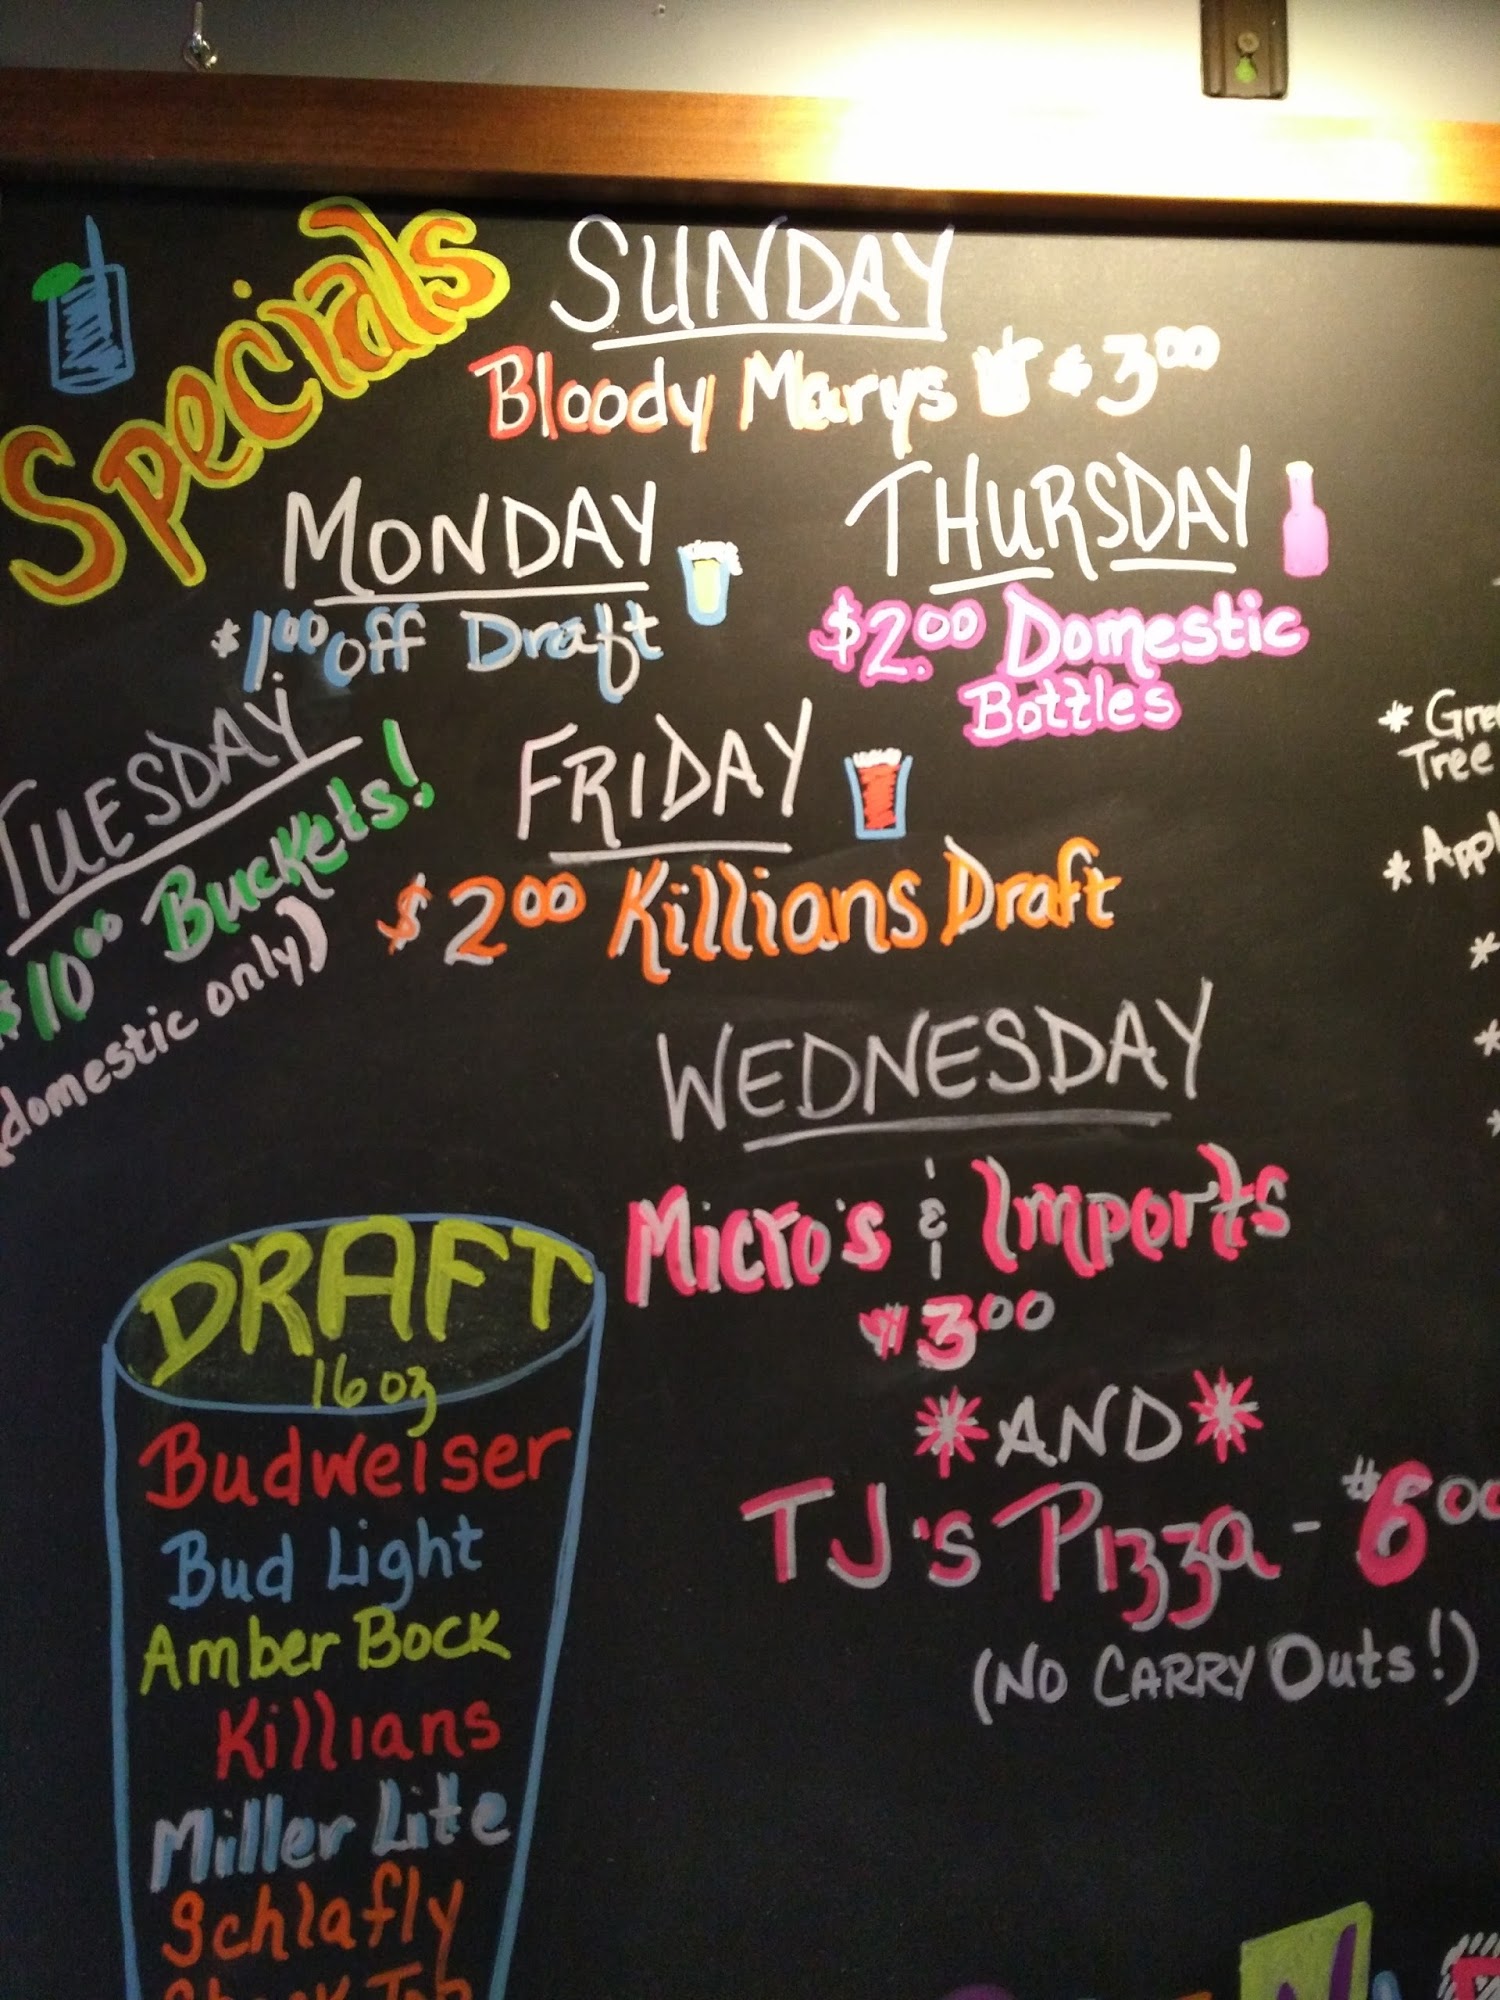 Specials
SUNDAY
Bloody Marys $3.00
MONDAY
$1.00 off Draft
THURSDAY
$2.00 Domestic
Bottles
TUESDAY
$10.00 Buckets!
(domestic only)
FRIDAY
$2.00 Killians Draft
WEDNESDAY
Micro's & Imports
$3.00
*AND*
TJ's Pizza - $6.00
(NO CARRY Outs!)
DRAFT
16 oz
Budweiser
Bud Light
Amber Bock
Killians
Miller Lite
Schlafly
* Gre
Tree
* Appl
*
*
*